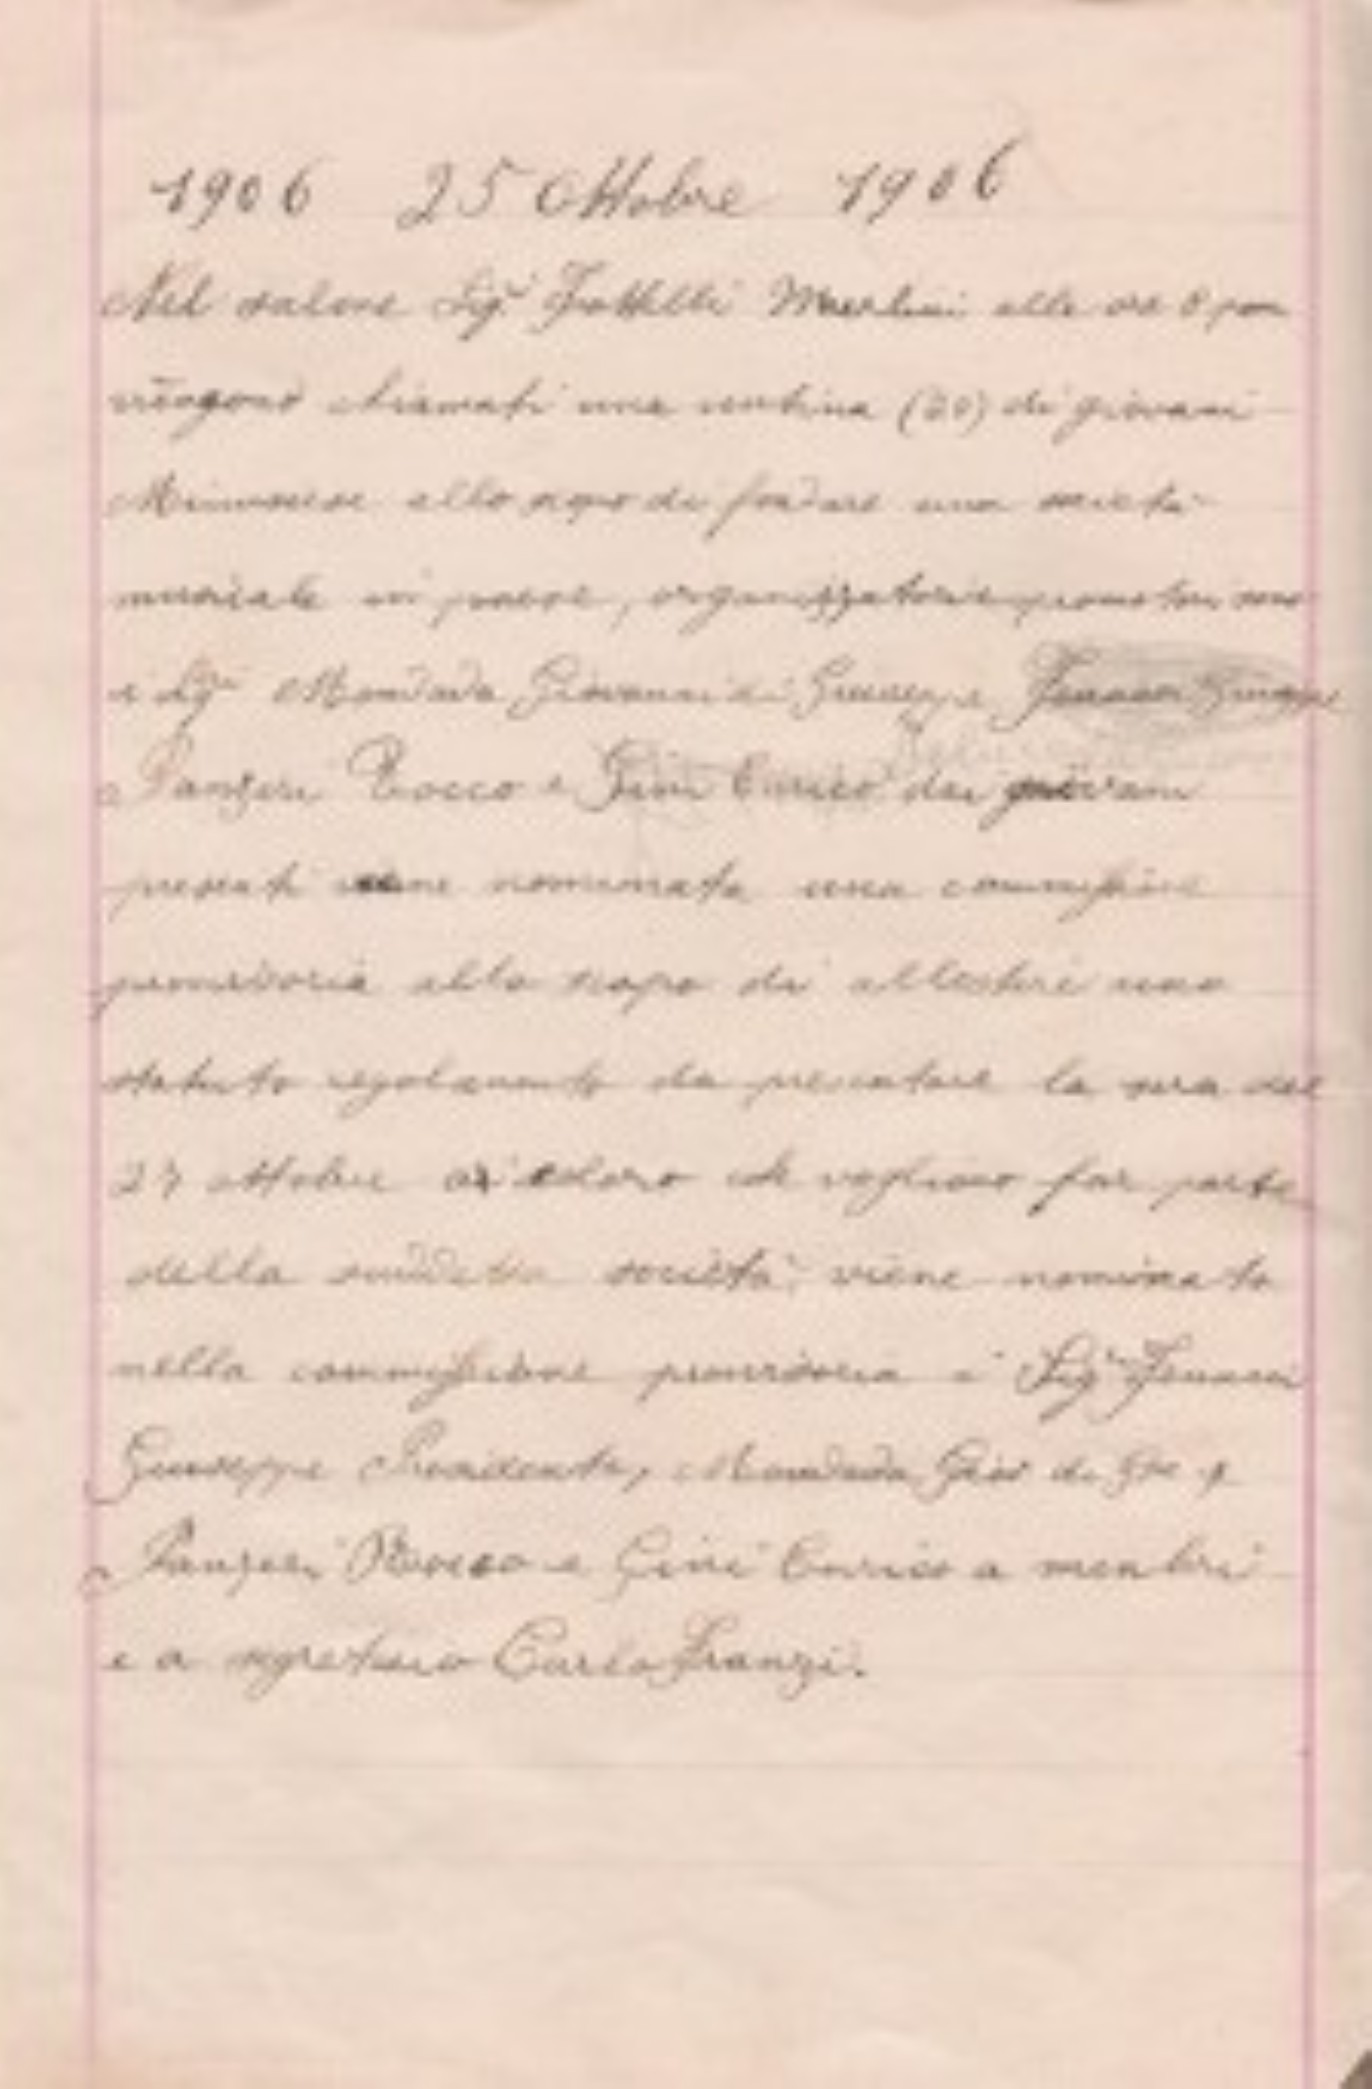 1906 25 Ottobre 1906
Nel salone Sigri Frattelli Merlini alle ore 8 pom
vengono chiamati una ventina (20) di giovani
Minusiese allo scopo di fondare una società
musicale in paese, organizzatori e promotori sono
i Sigri Mondada Giovanni di Giuseppe Giuseppe
Panzeri Rocco e Gini Enrico dai giovani
presenti viene nominata una commissione
provisoria allo scopo di allestire uno
statuto regolamento da presentare la sera del
27 ottobre ai coloro che vogliono far parte
della suddetta società, viene nominato
nella commissione provisoria i Sigri
Giuseppe Presidente, Mondada Gio di Gpe
Panzeri Rocco e Gini Enrico a membri
e a segretario Carlo Franzi.